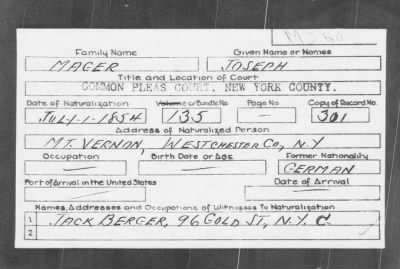 M260
Family Name Given Name or Names
MAGER JOSEPH
Title and Location of Court
COMMON PLEAS COURT. NEW YORK COUNTY.
Date of Naturalization Volume or Bundle No. Page No. Copy of Record No.
JULY-1-1854 135 — 301
Address of Naturalized Person
MT. VERNON, WESTCHESTER CO, N.Y
Occupation Birth Date or Age Former Nationality
— — GERMAN
Port of Arrival in the United States Date of Arrival
— —
Names, Addresses and Occupations of Witnesses To Naturalization
1 JACK BERGER, 96 GOLD ST, N.Y. C.
2